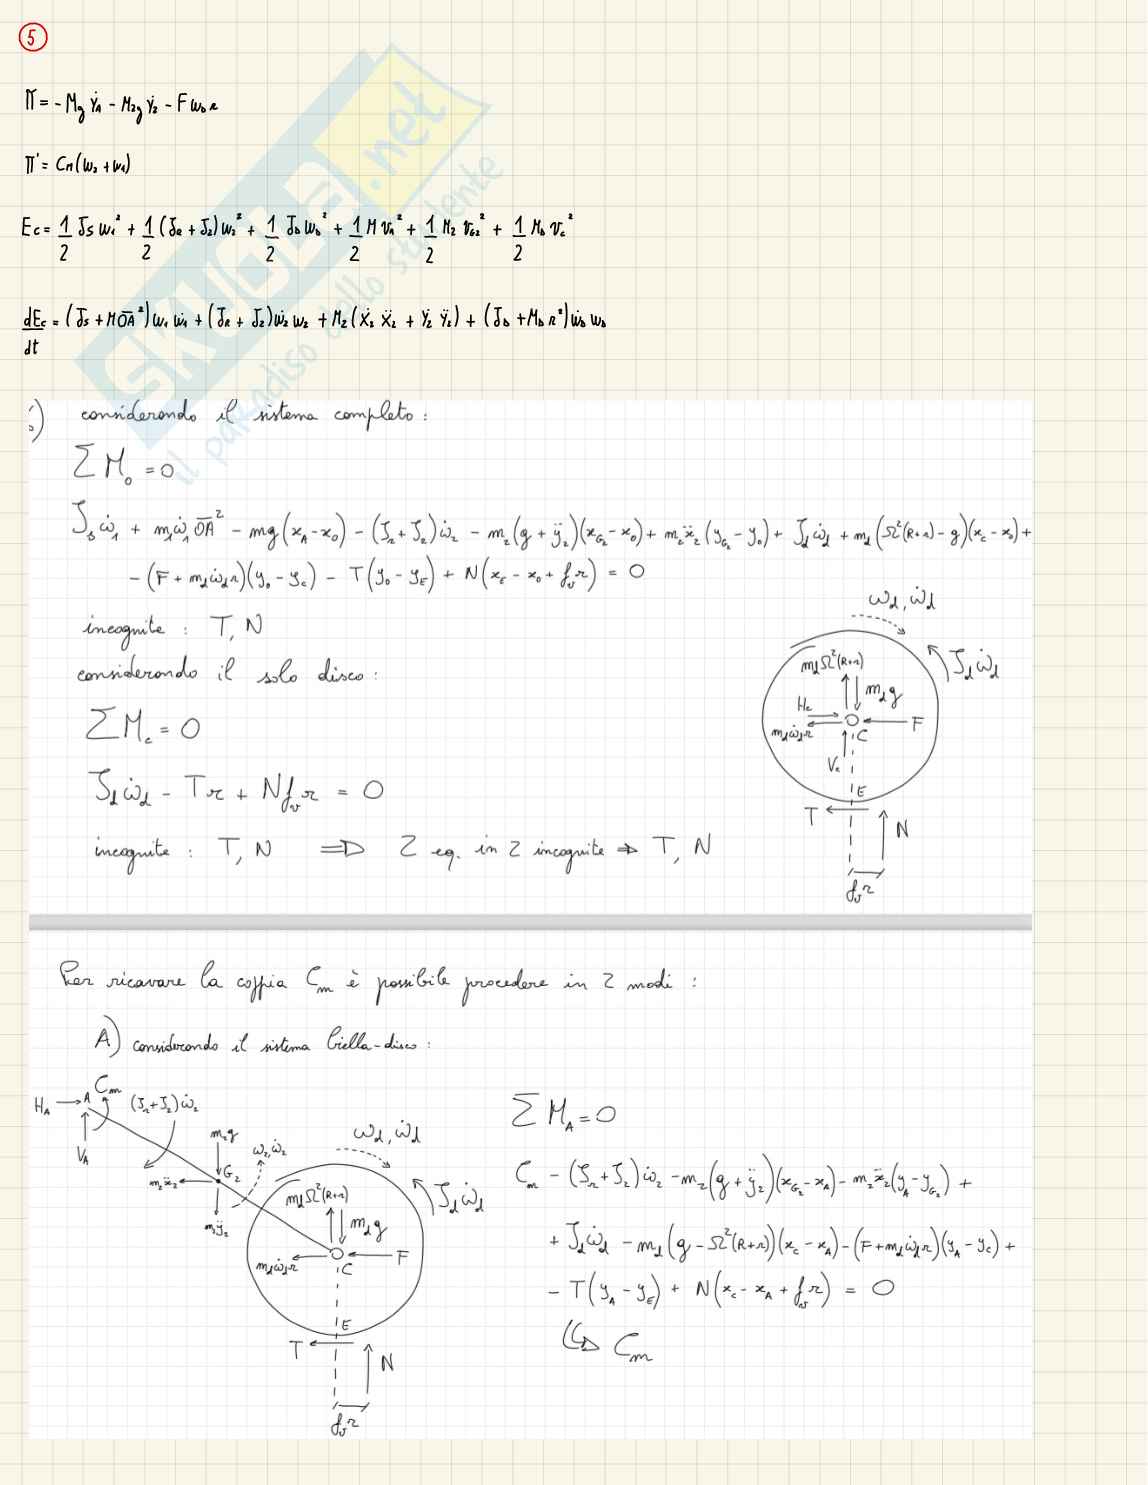 5
Π = - Mg ẏ_A - M₂g ẏ₂ - F ω_D r
Π' = Cm (ω₂ + ω₁)
Ec = 1/2 J_S ω₁² + 1/2 (J_R + J₂) ω₂² + 1/2 J_D ω_D² + 1/2 M v_A² + 1/2 M₂ v_G2² + 1/2 M_D v_C²
dEc/dt = (J_S + M OA²) ω₁ ω̇₁ + (J_R + J₂) ω̇₂ ω₂ + M₂ (ẋ₂ ẍ₂ + ẏ₂ ÿ₂) + (J_D + M_D r²) ω̇_D ω_D
considerando il sistema completo :
Σ M_O = 0
J_S ω̇₁ + m₁ ω̇₁ OA² - mg (x_A - x_O) - (J_r + J₂) ω̇₂ - m₂ (g + ÿ₂)(x_G2 - x_O) + m₂ẍ₂ (y_G2 - y_O) + J_d ω̇_d + m_d (Ω²(R+r) - g)(x_C - x_O) +
- (F + m_d ω̇_d r)(y_O - y_C) - T (y_O - y_E) + N (x_E - x_O + f_v r) = 0
incognite : T, N
considerando il solo disco :
Σ M_C = 0
J_d ω̇_d - T r + N f_v r = 0
incognite : T, N ⇒ 2 eq. in 2 incognite ⇒ T, N
ω_d, ω̇_d
J_d ω̇_d
m_d Ω²(R+r)
m_d g
H_C
F
m_d ω̇_d r
C
V_C
E
T
N
f_v r
Per ricavare la coppia Cm è possibile procedere in 2 modi :
A) considerando il sistema biella-disco :
H_A
A
Cm
(J_r + J₂) ω̇₂
V_A
m₂g
ω₂, ω̇₂
G₂
m₂ẍ₂
m₂ÿ₂
ω_d, ω̇_d
J_d ω̇_d
m_d Ω²(R+r)
m_d g
F
m_d ω̇_d r
C
E
T
N
f_v r
Σ M_A = 0
Cm - (J_r + J₂) ω̇₂ - m₂ (g + ÿ₂)(x_G2 - x_A) - m₂ẍ₂ (y_A - y_G2) +
+ J_d ω̇_d - m_d (g - Ω²(R+r))(x_C - x_A) - (F + m_d ω̇_d r)(y_A - y_C) +
- T (y_A - y_E) + N (x_C - x_A + f_v r) = 0
↳ Cm
SKUOLA.net
il paradiso dello studente